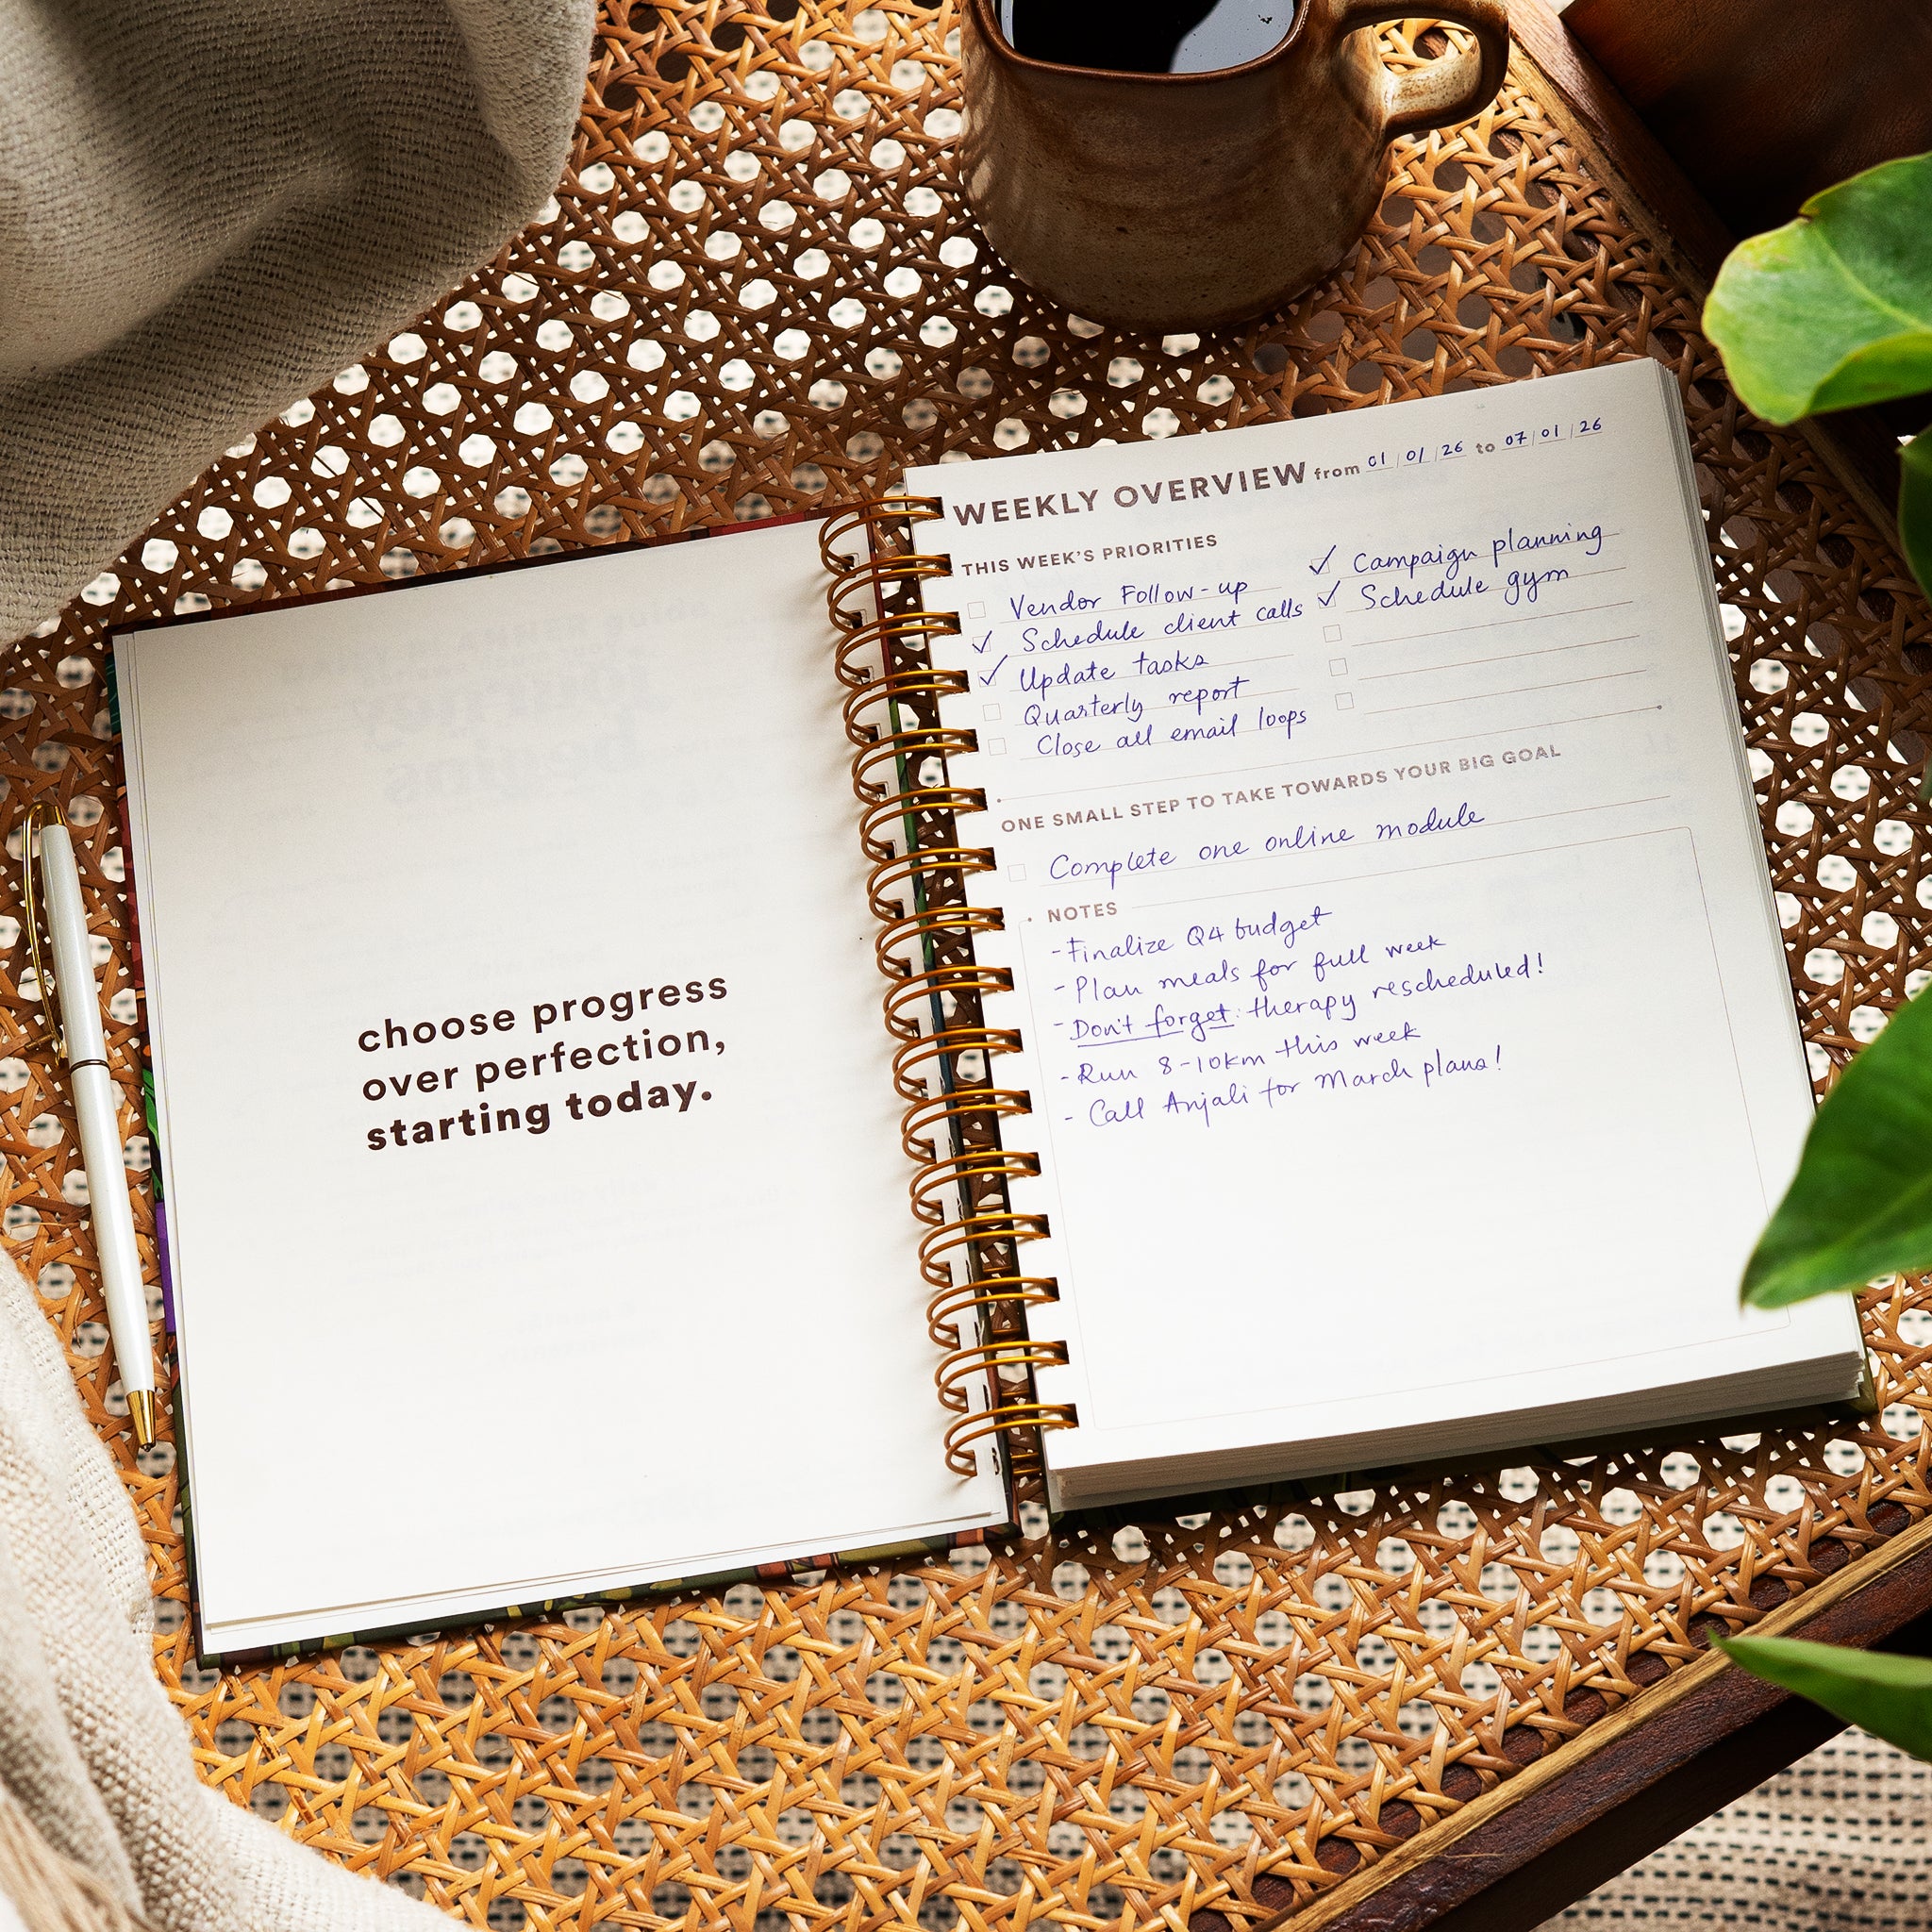 choose progress
over perfection,
starting today.
WEEKLY OVERVIEW from 01/01/26 to 07/01/26
THIS WEEK'S PRIORITIES
Vendor Follow-up
✓ Schedule client calls
✓ Update tasks
Quarterly report
Close all email loops
✓ Campaign planning
✓ Schedule gym
ONE SMALL STEP TO TAKE TOWARDS YOUR BIG GOAL
Complete one online module
NOTES
- Finalize Q4 budget
- Plan meals for full week
- Don't forget: therapy rescheduled!
- Run 8-10km this week
- Call Anjali for March plans!